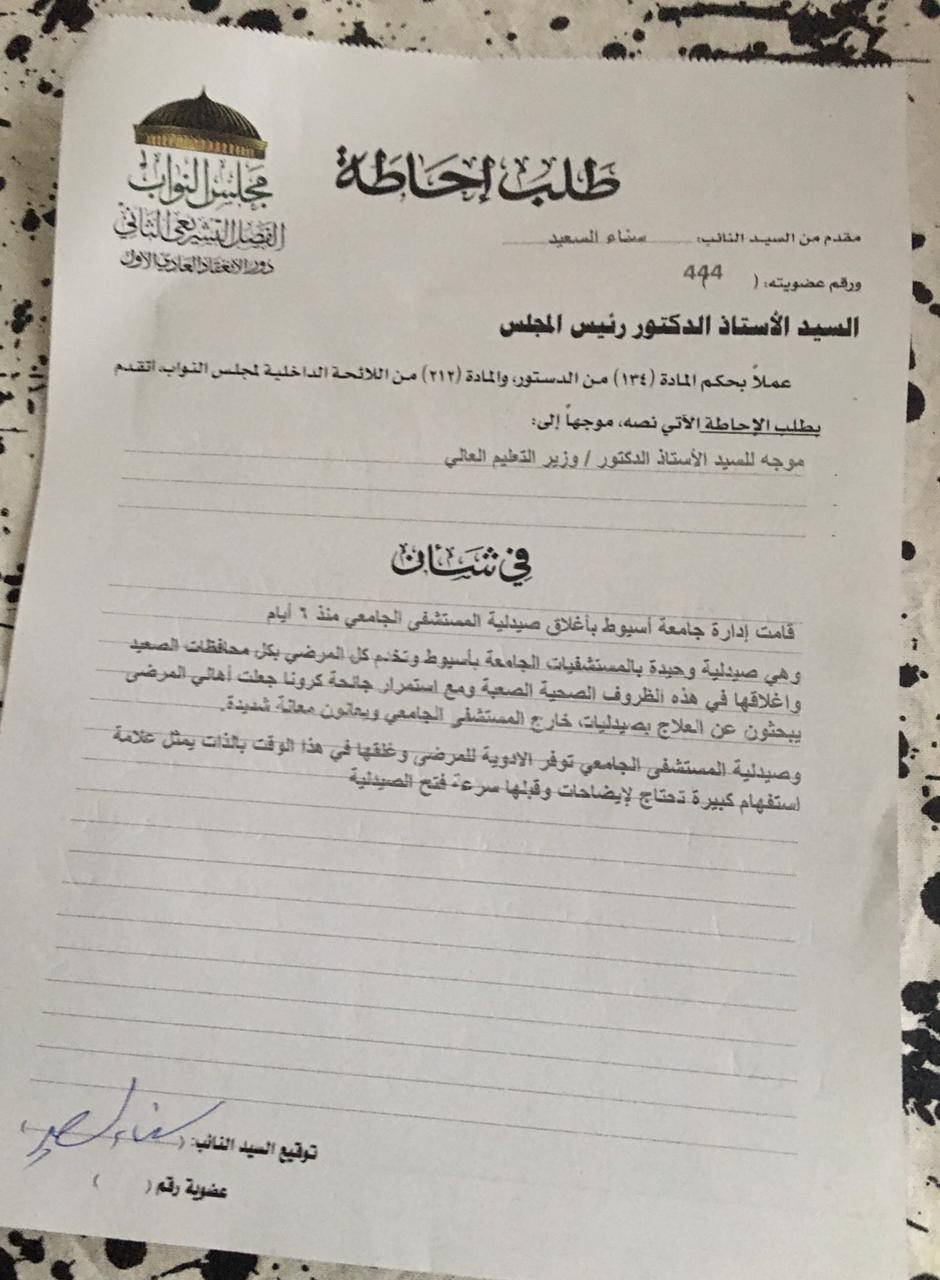 مجلس النواب
الفصل التشريعي الثاني
دور الانعقاد العادي الأول
طلب إحاطة
مقدم من السيد النائب: سناء السعيد
ورقم عضويته: ( 444 )
السيد الأستاذ الدكتور رئيس المجلس
عملاً بحكم المادة (١٣٤) من الدستور، والمادة (٢١٢) من اللائحة الداخلية لمجلس النواب، أتقدم
بطلب الإحاطة الآتي نصه، موجهاً إلى:
موجه للسيد الأستاذ الدكتور / وزير التعليم العالي
في شأن
قامت إدارة جامعة أسيوط بأغلاق صيدلية المستشفى الجامعي منذ ٦ أيام
وهي صيدلية وحيدة بالمستشفيات الجامعة بأسيوط وتخدم كل المرضي بكل محافظات الصعيد
واغلاقها في هذه الظروف الصحية الصعبة ومع استمرار جائحة كرونا جعلت أهالي المرضى
يبحثون عن العلاج بصيدليات خارج المستشفى الجامعي ويعانون معانة شديدة.
وصيدلية المستشفى الجامعي توفر الادوية للمرضى وغلقها في هذا الوقت بالذات يمثل علامة
استفهام كبيرة تحتاج لإيضاحات وقبلها سرعة فتح الصيدلية
توقيع السيد النائب: ( سناء السعيد )
عضوية رقم ( )